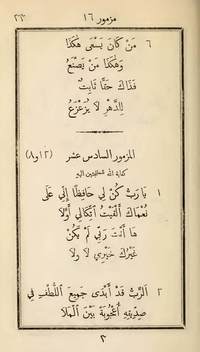 مزمور ١٦
٦ مَن كَانَ يَسْعَى هَكَذَا
وَهَكَذَا مَنْ يَصْنَعُ
فَذَاكَ حَقًّا ثَابِتٌ
لِلدَّهْرِ لاَ يُزَعْزَعُ
المزمور السادس عشر (١٢و٨)
١ يَا رَبُّ كُنْ لِي حَافِظًا إِنِّي عَلَى
نُعْمَاكَ أَلْقَيْتُ اتِّكَالِي أَوَّلاَ
هَا أَنْتَ رَبِّي لَمْ يَكُنْ
غَيْرُكَ خَيْرِي لاَ وَلاَ
٢ اَلرَّبُّ قَدْ أَبْدَى جَمِيعَ اللُّطْفِ فِي
صِدِّيقِهِ أُعْجُوبَةً بَيْنَ الْمَلاَ